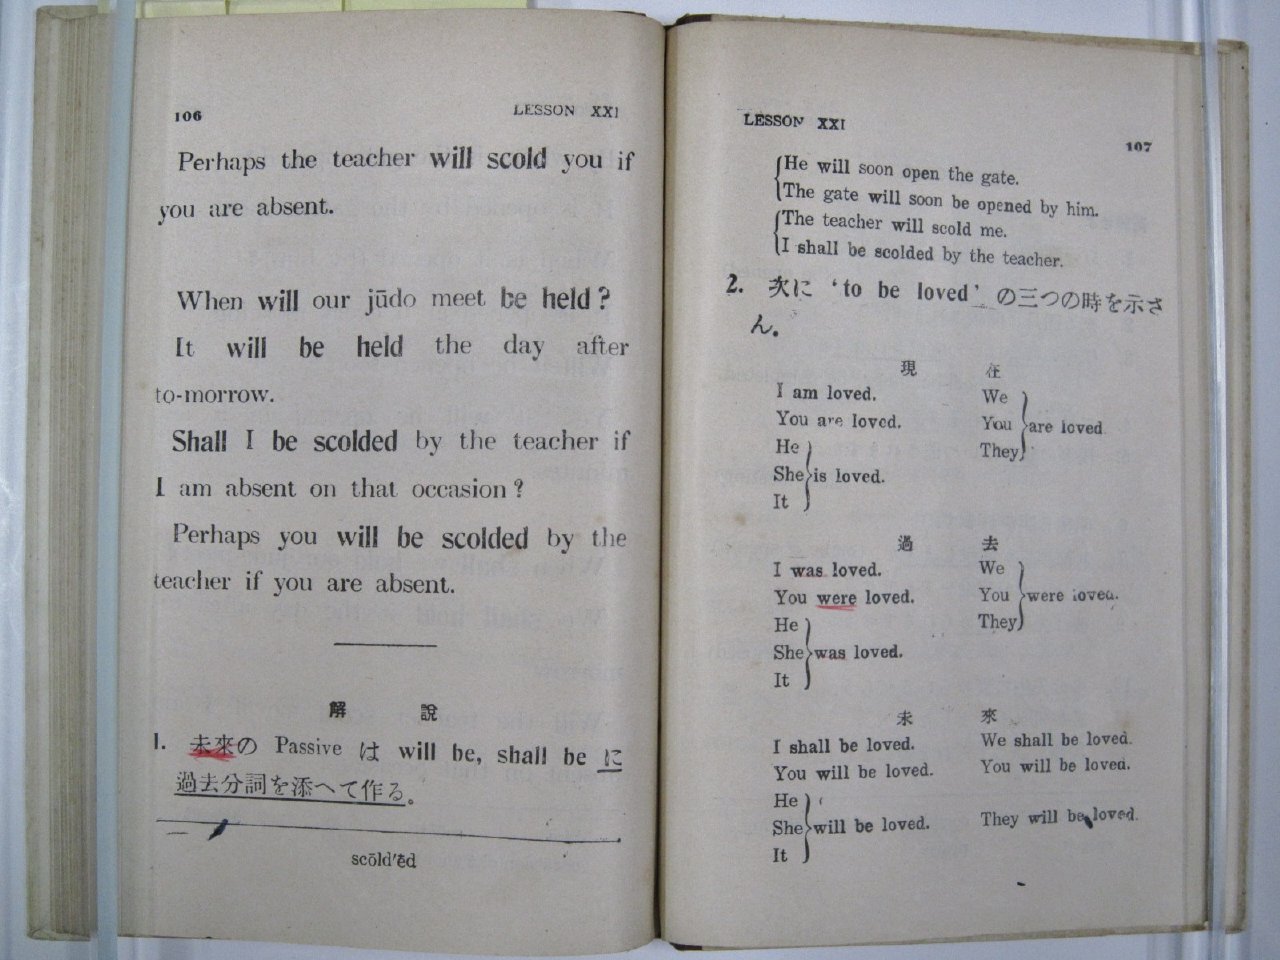 106 LESSON XXI
Perhaps the teacher will scold you if
you are absent.
When will our jūdo meet be held?
It will be held the day after
to-morrow.
Shall I be scolded by the teacher if
I am absent on that occasion?
Perhaps you will be scolded by the
teacher if you are absent.
解 說
1. 未來の Passive は will be, shall be に
過去分詞を添へて作る。
scōld'ĕd
LESSON XXI 107
He will soon open the gate.
The gate will soon be opened by him.
The teacher will scold me.
I shall be scolded by the teacher.
2. 次に 'to be loved' の三つの時を示さ
ん。
現 在
I am loved. We
You are loved. You are loved
He They
She is loved.
It
過 去
I was loved. We
You were loved. You were loved.
He They
She was loved.
It
未 來
I shall be loved. We shall be loved.
You will be loved. You will be loved.
He
She will be loved. They will be loved.
It